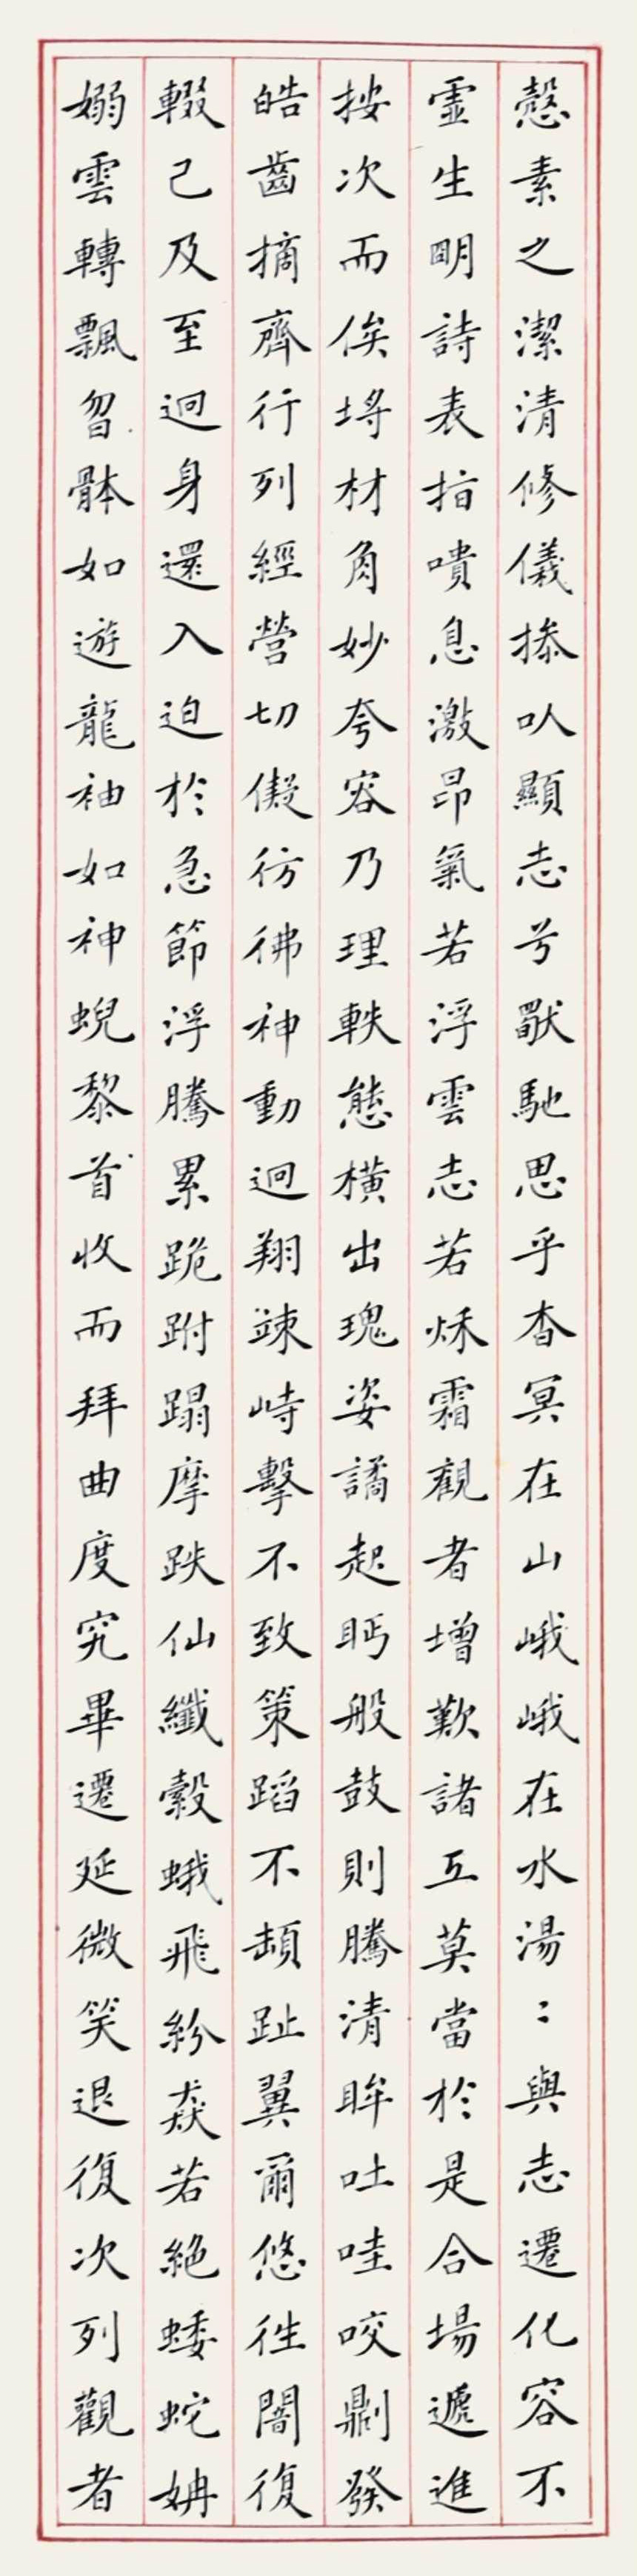 愨素之潔清修儀操㕥顯志兮獸馳思乎杳冥在山峨峨在水湯〻與志遷化容不
虛生明詩表指嘳息激昂氣若浮雲志若秌霜觀者增歎諸工莫當於是合場遞進
按次而俟埒材角妙夸容乃理軼態橫出瑰姿譎起眄般鼓則騰清眸吐哇咬則發
皓齒摘齊行列經營切儗彷彿神動迴翔竦峙擊不致策蹈不頓趾翼爾悠往闇復
輟已及至迴身還入迫於急節浮騰累跪跗蹋摩跌仙纖縠蛾飛紛猋若絕蜲蛇姌
嫋雲轉飄曶體如遊龍袖如神蜺黎首收而拜曲度究畢遷延微笑退復次列觀者